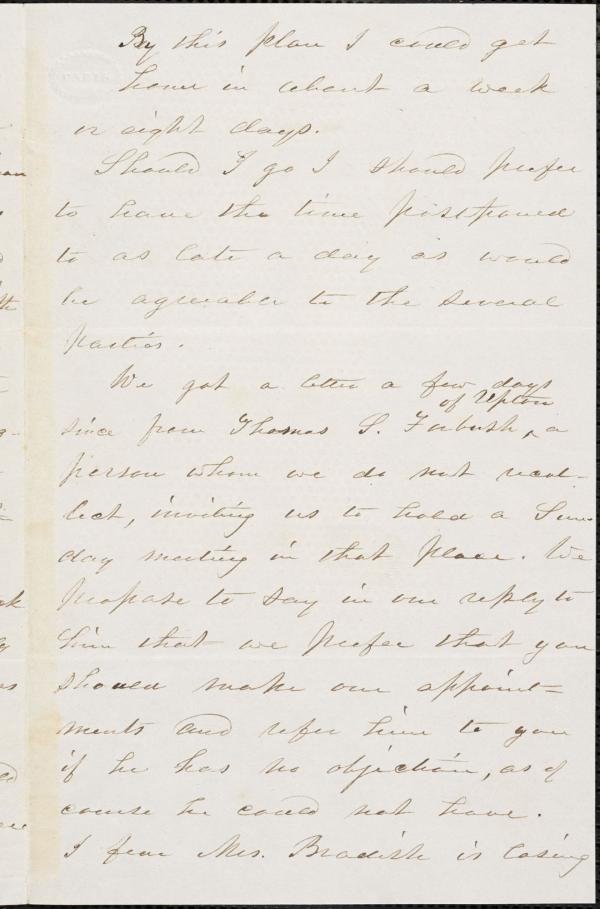 By this plan I could get
home in about a week
or eight days.
Should I go I should prefer
to have the time postponed
to as late a day as would
be agreeable to the several
parties.
We got a letter a few days
since from Thomas S. Forbush, of Upton a
person whom we do not recol-
lect, inviting us to hold a Sun-
day meeting in that place. We
propose to say in our reply to
him that we prefer that you
should make our appoint=
ments and refer him to you
if he has no objection, as of
course he could not have.
I fear Mrs. Bradish is losing